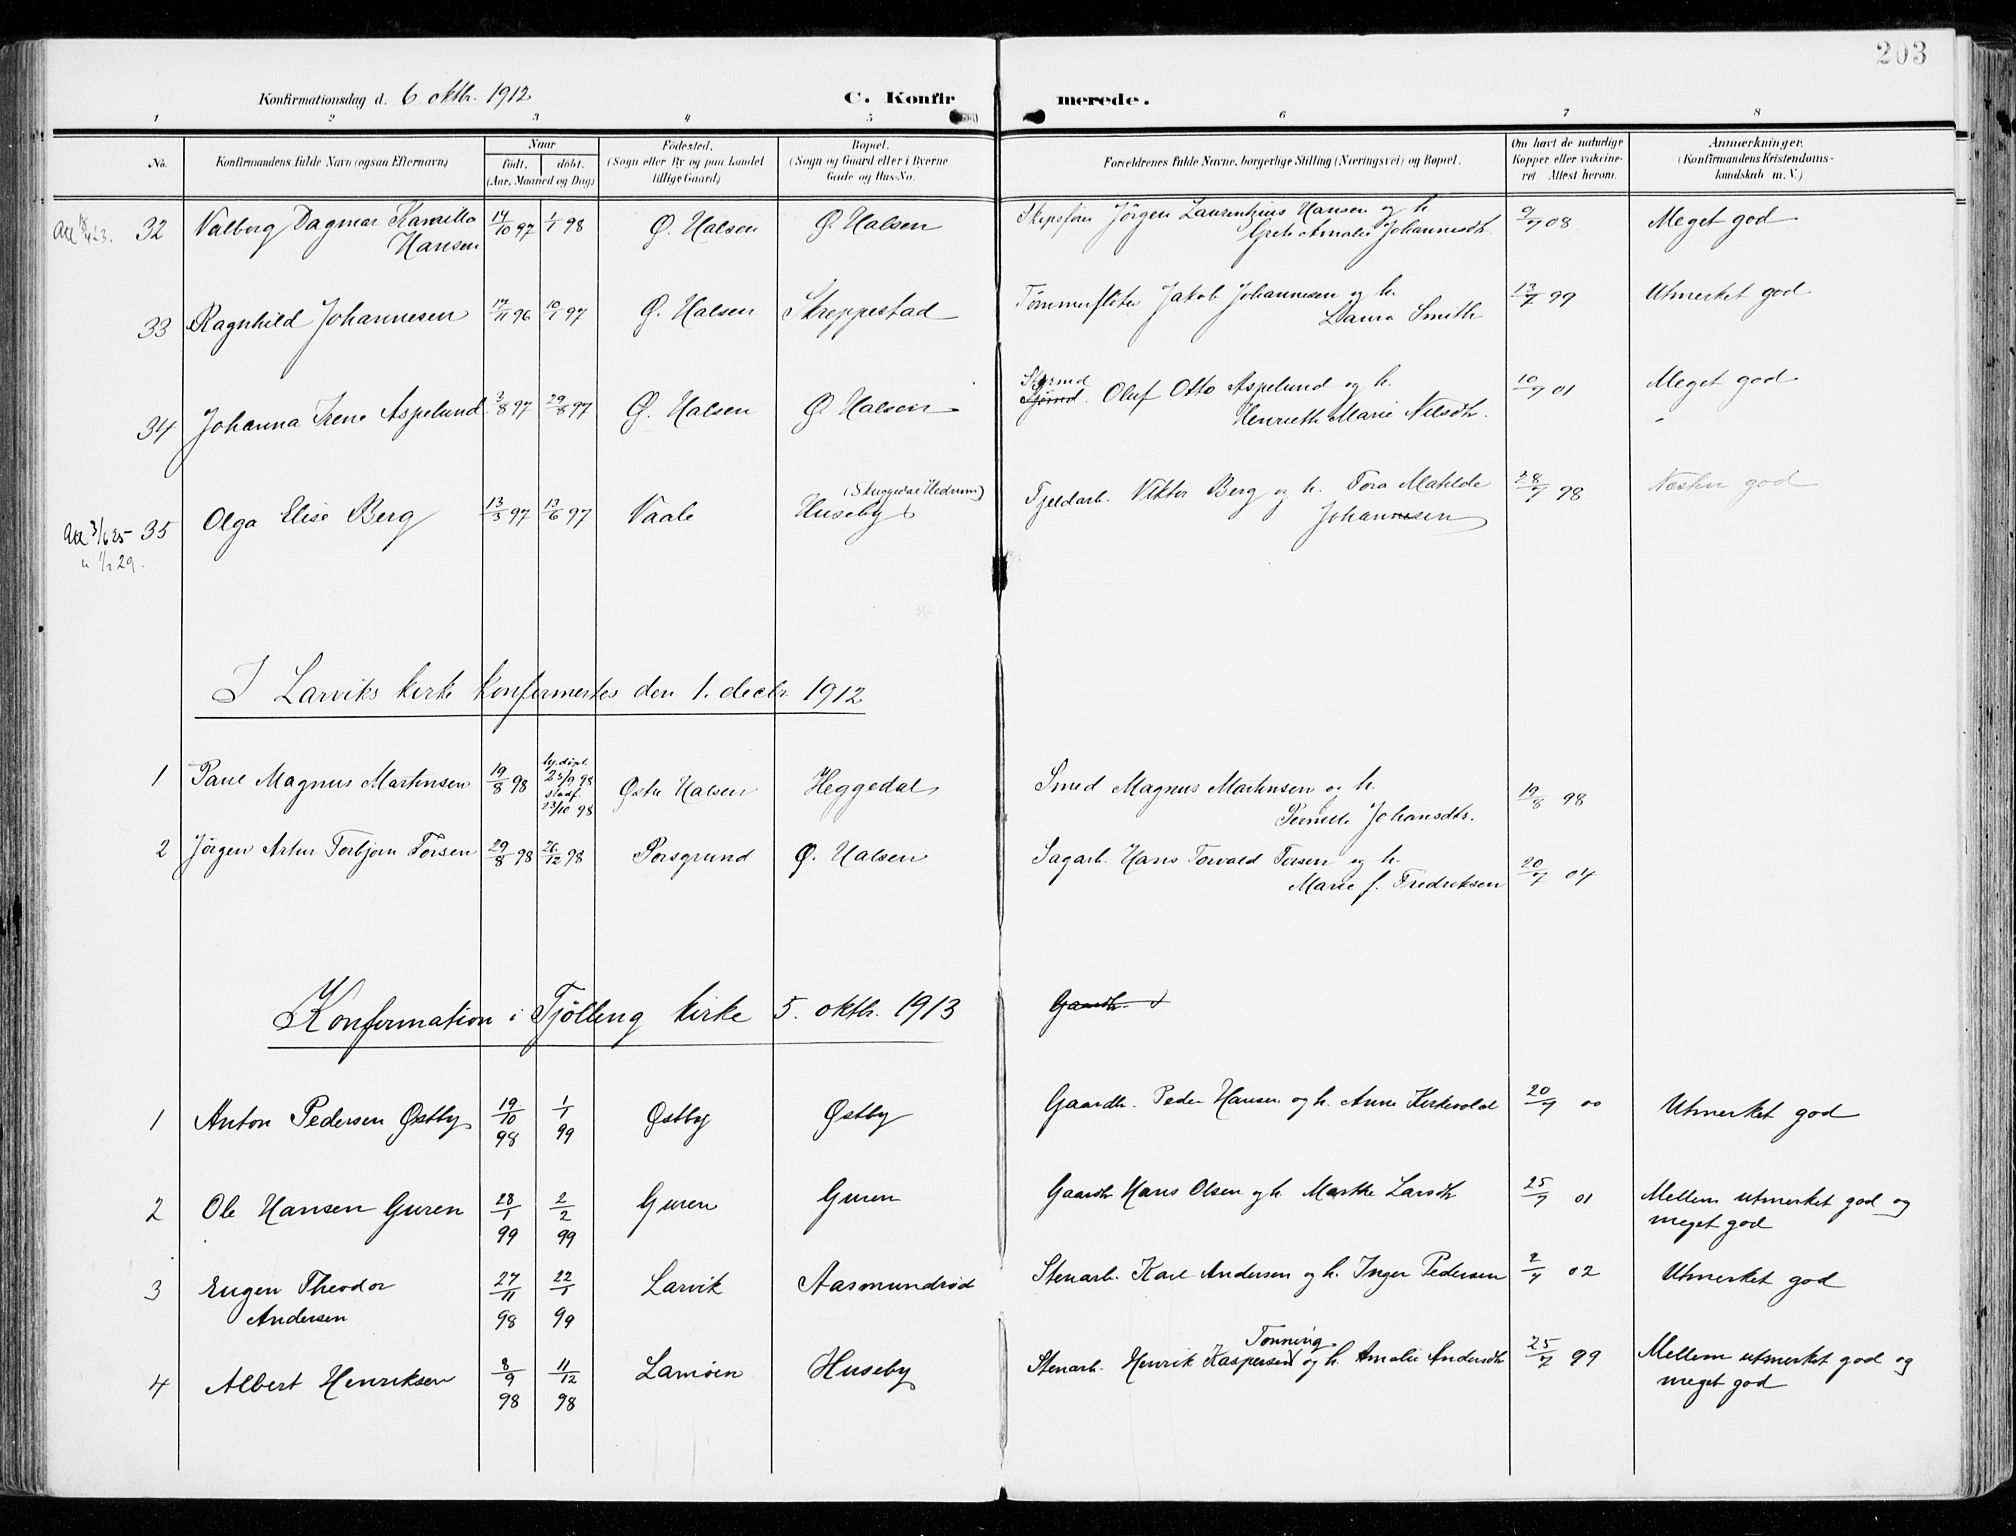 203
Konfirmationsdag d. 6 oktb. 1912
C. Konfirmerede.
1 2 3 4 5 6 7 8
No. Konfirmandens fulde Navn (ogsaa Efternavn) Naar født. døbt. (Aar, Maaned og Dag) Fødested. (Sogn eller By og paa Landet tillige Gaard) Bopæl. (Sogn og Gaard eller i Byerne Gade og Hus-No. Forældrenes fulde Navne, borgerlige Stilling (Næringsvei) og Bopæl. Om havt de naturlige Kopper eller vakcineret Attest herom. Anmærkninger. (Konfirmandens Kristendomskundskab m. V.)
32 Valborg Dagmar Kamilla Hansen 14/10 97 1/1 98 Ø. Halsen Ø. Halsen Skipsfører Jörgen Laurentzius Hansen og h. Grete Amalie Johannesdtr. 9/7 08 Meget god
33 Ragnhild Johannesen 17/11 96 10/1 97 Ø. Halsen Skreppestad Tømmerfløter Jakob Johannesen og h. Laura Smith 13/7 99 Utmerket god
34 Johanna Irene Aspelund 2/8 97 29/8 97 Ø. Halsen Ø. Halsen Styrmd Sjömd. Oluf Otto Aspelund og h. Henriette Marie Nilsdtr. 10/7 01 Meget god
Att 3/6 25 35 Olga Elise Berg 13/3 97 13/6 97 Vaale Huseby (Skuggedal Hedrum) Fjeldarb. Viktor Berg og h. Tora Matilde Johannesen 28/7 98 Næsten god
I Larviks kirke konfirmertes den 1. decbr. 1912
1 Paul Magnus Martinsen 19/8 98 hj. døpt 25/9 98 stadf. 23/10 98 Østre Halsen Heggedal Smed Magnus Martinsen og h. Pernille Johansdtr. 19/8 98
2 Jörgen Artur Torbjørn Torsen 29/8 98 26/12 98 Porsgrund Ø. Halsen Sagarb. Hans Torvald Torsen og h. Marie f. Fredriksen 20/7 04
Konfirmation i Tjölling kirke 5. oktbr. 1913 Gaardbr.
1 Anton Pedersen Østby 19/10 98 1/1 99 Østby Østby Gaardbr. Peder Hansen og h. Anne Kirkevold 20/7 00 Utmerket god
2 Ole Hansen Guren 28/1 99 2/2 99 Guren Guren Gaardbr Hans Olsen og h. Marthe Larsdtr 25/7 01 Mellem utmerket god og meget god
3 Eugen Theodor Andersen 27/11 98 22/1 99 Larvik Aasmundrød Stenarb. Karl Andersen og h. Inger Pedersen 2/7 02 Utmerket god
4 Albert Henriksen 8/9 98 11/12 98 Lamöen Huseby Stenarb. Henrik Kaspersen Tonning og h. Amalie Andersdtr 25/7 99 Mellem utmerket god og meget god